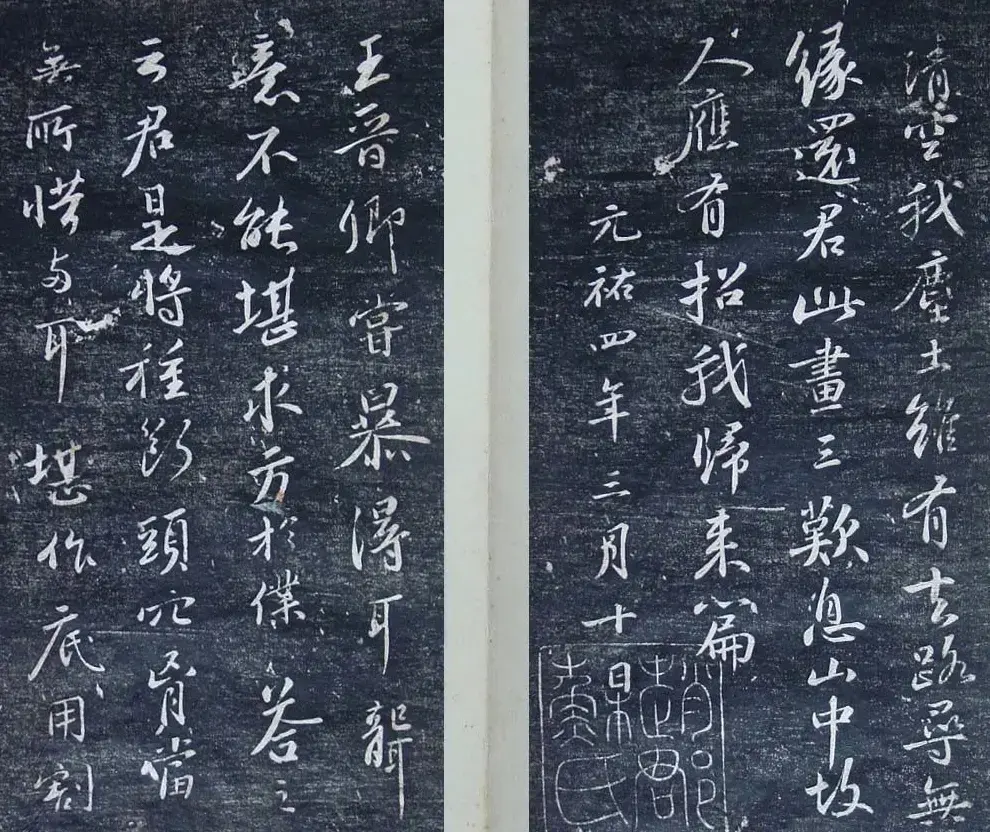 清空我塵土雖有去路尋無
緣還君此畫三歎息山中故
人應有招我歸來篇
元祐四年三月十日
趙郡蘇氏
王晉卿嘗暴得耳聾
意不能堪求方於僕答之
云君是將種斷頭穴胷當
無所惜兩耳堪作底用割